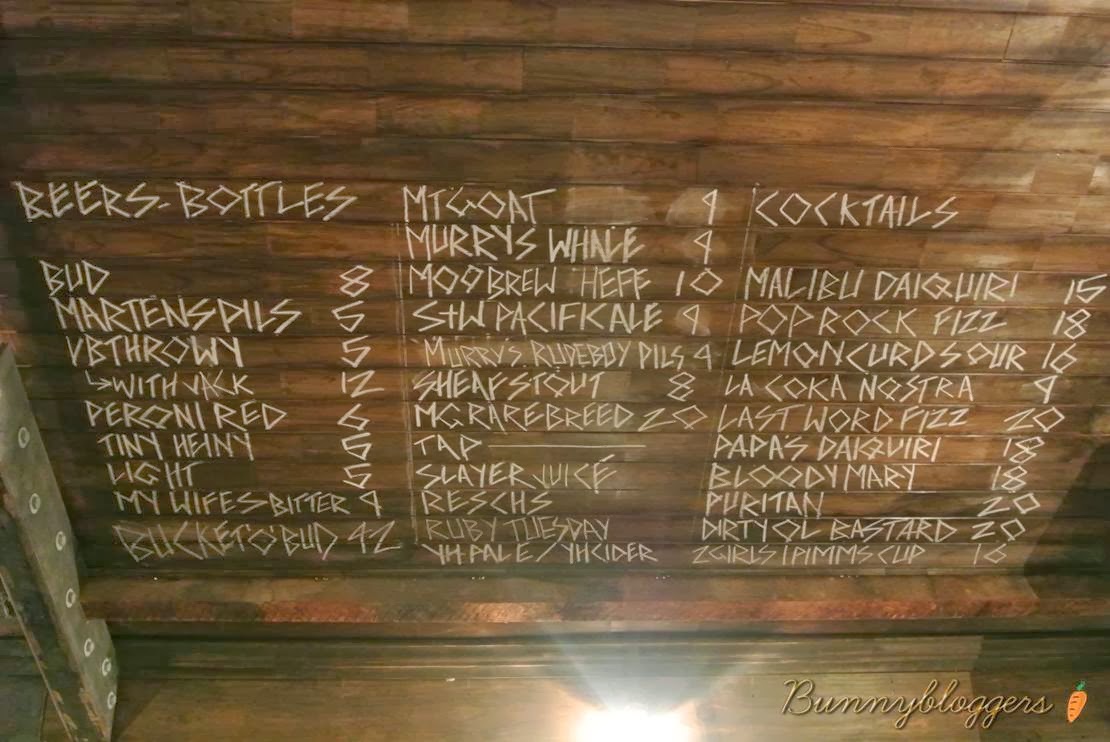 BEERS-BOTTLES
BUD 8
MARTENS PILS 5
VB THROWY 5
↳WITH JACK 12
PERONI RED 6
TINY HEINY 5
LIGHT 5
MY WIFES BITTER 9
BUCKET O' BUD 42
MT GOAT 9
MURRYS WHALE 9
MOO BREW HEFF 10
S+W PACIFIK ALE 9
MURRY'S RUDEBOY PILS 9
SHEAF STOUT 8
MG RARE BREED 20
TAP
SLAYER JUICE
RESCHS
RUBY TUESDAY
YH PALE / YH CIDER
COCKTAILS
MALIBU DAIQUIRI 15
POP ROCK FIZZ 18
LEMON CURD SOUR 16
LA COKA NOSTRA 9
LAST WORD FIZZ 20
PAPA'S DAIQUIRI 18
BLOODY MARY 18
PURITAN 20
DIRTY OL BASTARD 20
2 GIRLS 1 PIMMS CUP 16
Bunnybloggers